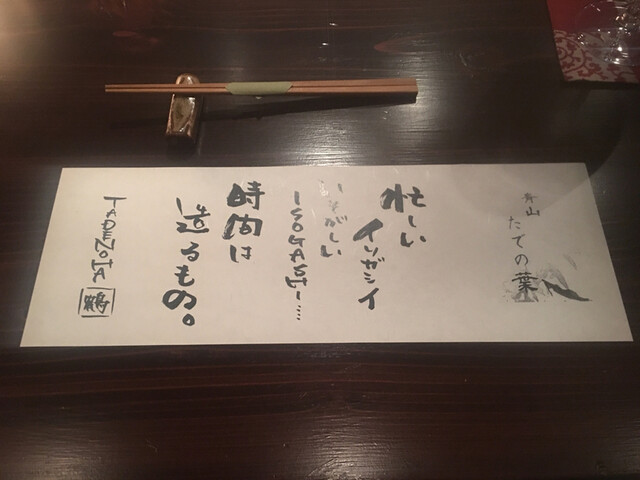 青山
たでの葉
忙しい
イソガシイ
いそがしい
ISOGASHI....
時間は
造るもの。
TADENOHA
鶴